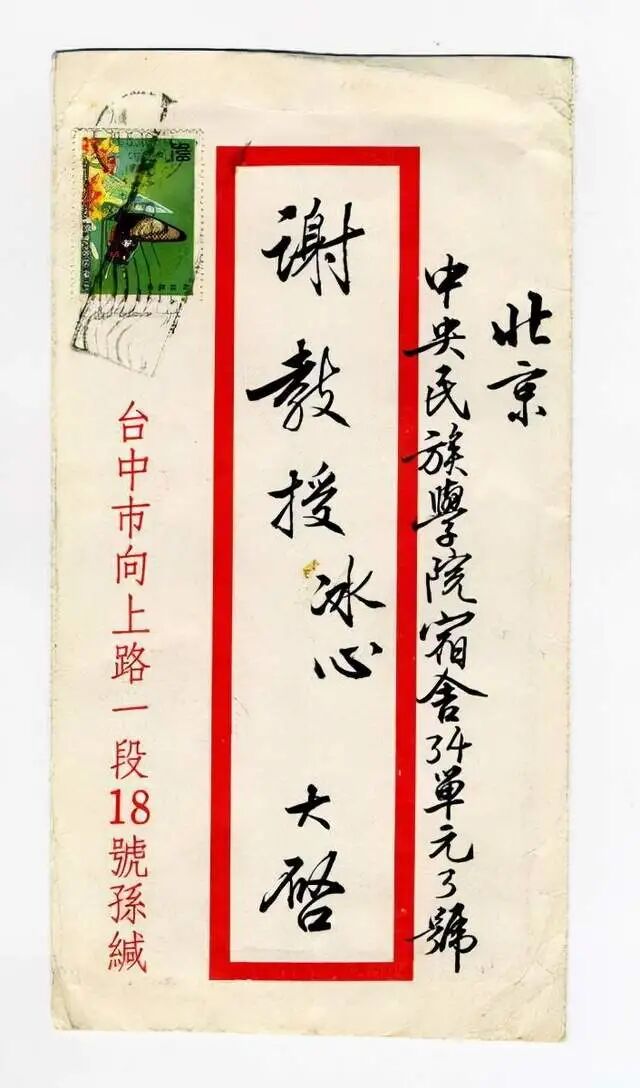 北京
中央民族學院宿舍34單元3號
謝教授冰心 大啓
台中市向上路一段18號孫緘